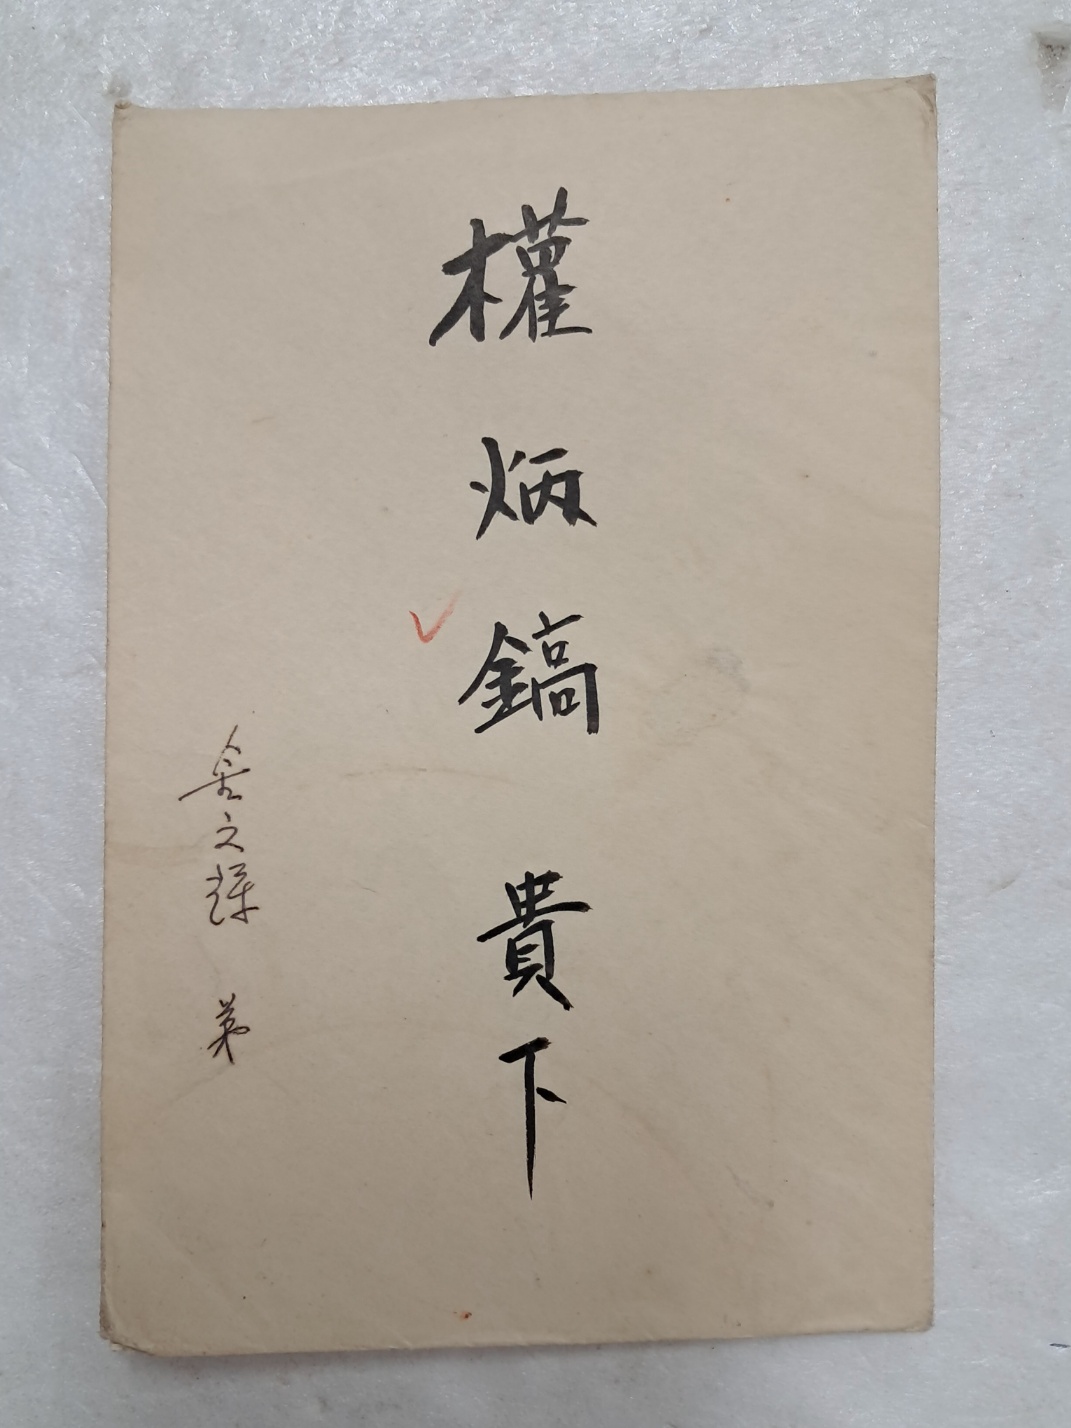 權炳鎬 貴下
金文輝 弟